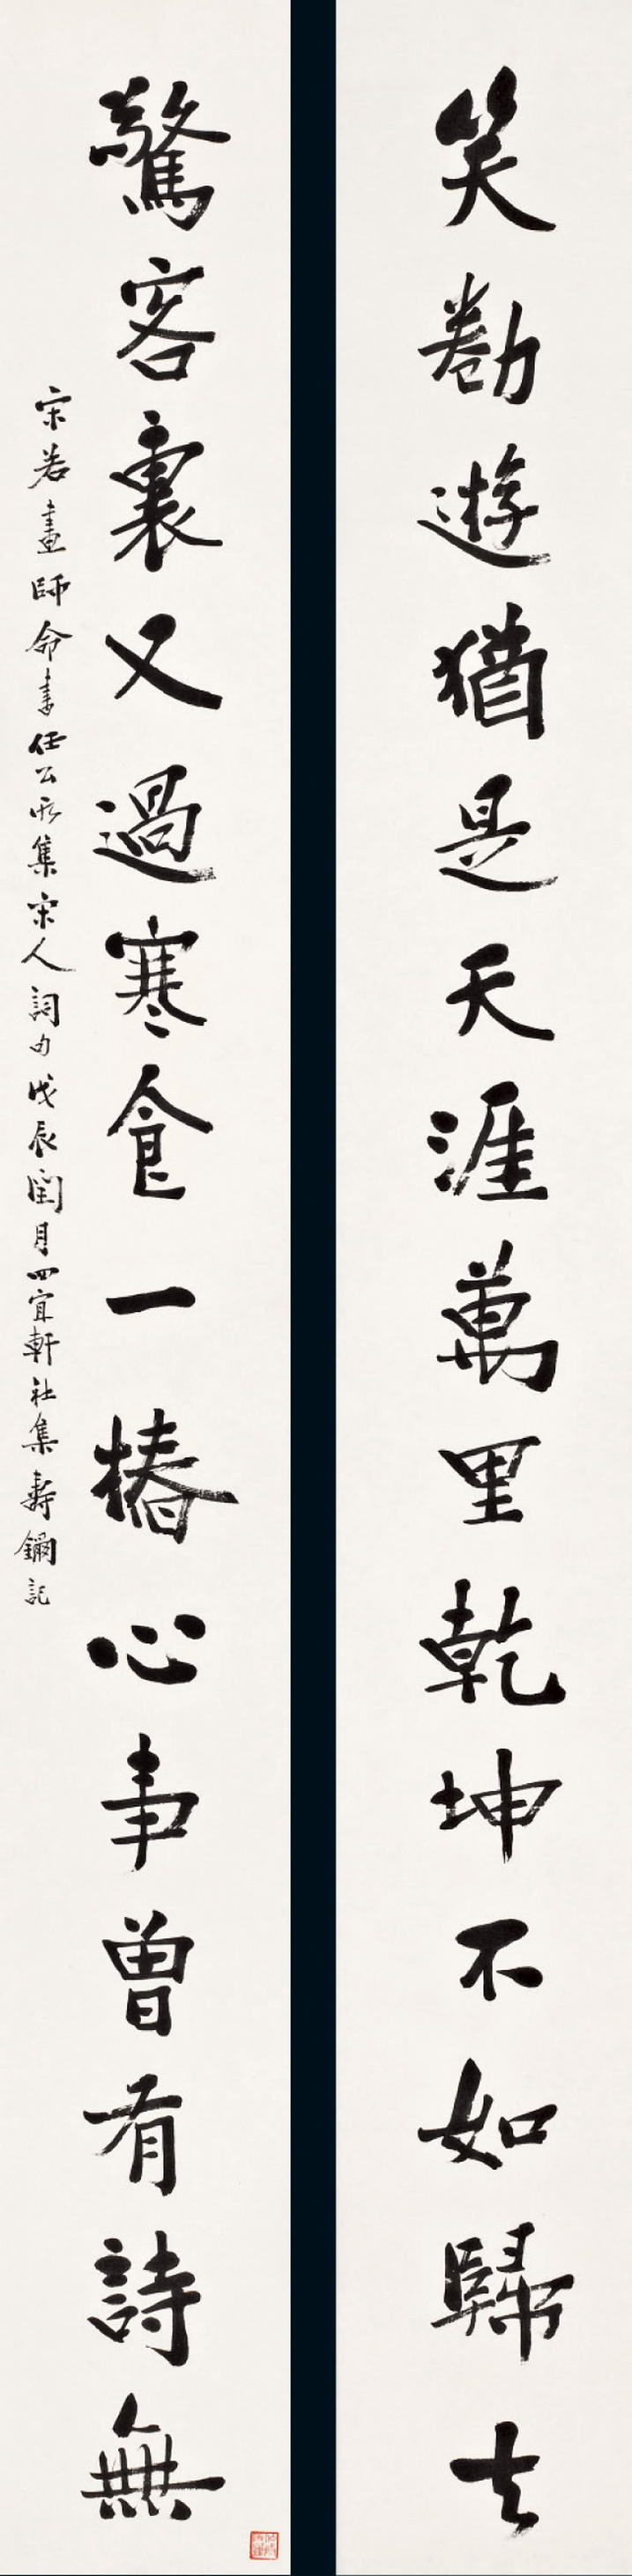 笑勌遊猶是天涯萬里乾坤不如歸去
驚客裏又過寒食一樁心事曾有詩無
宋若畫師命書任公所集宋人詞句戊辰閏月四宜軒社集壽鑈記